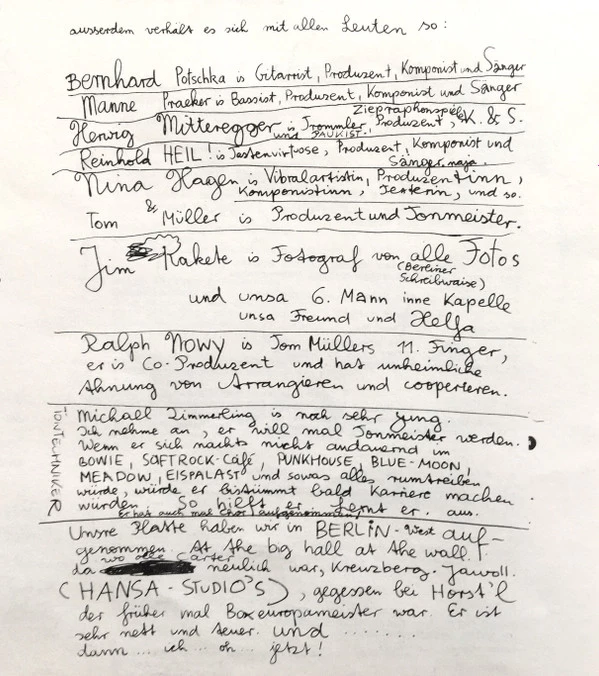 ausserdem verhält es sich mit allen Leuten so:
Bernhard Potschka is Gitarrist, Produzent, Komponist und Sänger
Manne Praeker is Bassist, Produzent, Komponist und Sänger
Ziepraphonspieler
Herwig Mitteregger is Trommler, Produzent, K. & S.
und PAUKIST!
Reinhold HEIL! is Tastenvirtuose, Produzent, Komponist und
Sänger naja.
Nina Hagen is Vibralartistin, Produzentinn,
Komponistinn, Texterin, und so.
Tom & Müller is Produzent und Tonmeister.
Jim Rakete is Fotograf von alle Fotos
(Berliner
Schreibwaise)
und unsa 6. Mann inne Kapelle
unsa Freund und Helfa
Ralph Nowy is Tom Müllers 11. Finger,
er is Co-Produzent und hat unheimliche
Ahnung von Arrangieren und cooperieren.
TONTECHNIKER
Michael Zimmerling is noch sehr jung.
Ich nehme an, er will mal Tonmeister werden.
Wenn er sich nachts nicht andauernd im
BOWIE, SAFTROCK-Café, PUNKHOUSE, BLUE-MOON,
MEADOW, EISPALAST und sowas alles rumtreiben
würde, würde er bistümmt bald Karriere machen
würden. So hilft er. Lernt er. aus.
er hat auch mal Chor aufgenommen
Unsre Platte haben wir in BERLIN-West auf-
genommen. At the big hall at the wall!
wo olle Carter
da neulich war, Kreuzberg. Jawoll.
(HANSA-STUDIO'S), gegessen bei Horst'l
der früher mal Boxeuropameister war. Er ist
sehr nett und teuer. und .......
dann ... ich ... oh ... jetzt!